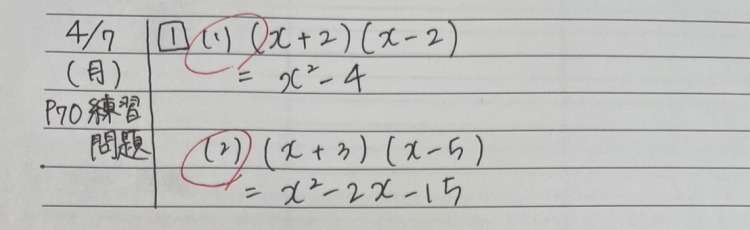 4/7 1 (1) (x+2)(x-2)
(月) = x²-4
P70 練習
問題 (2) (x+3)(x-5)
= x²-2x-15